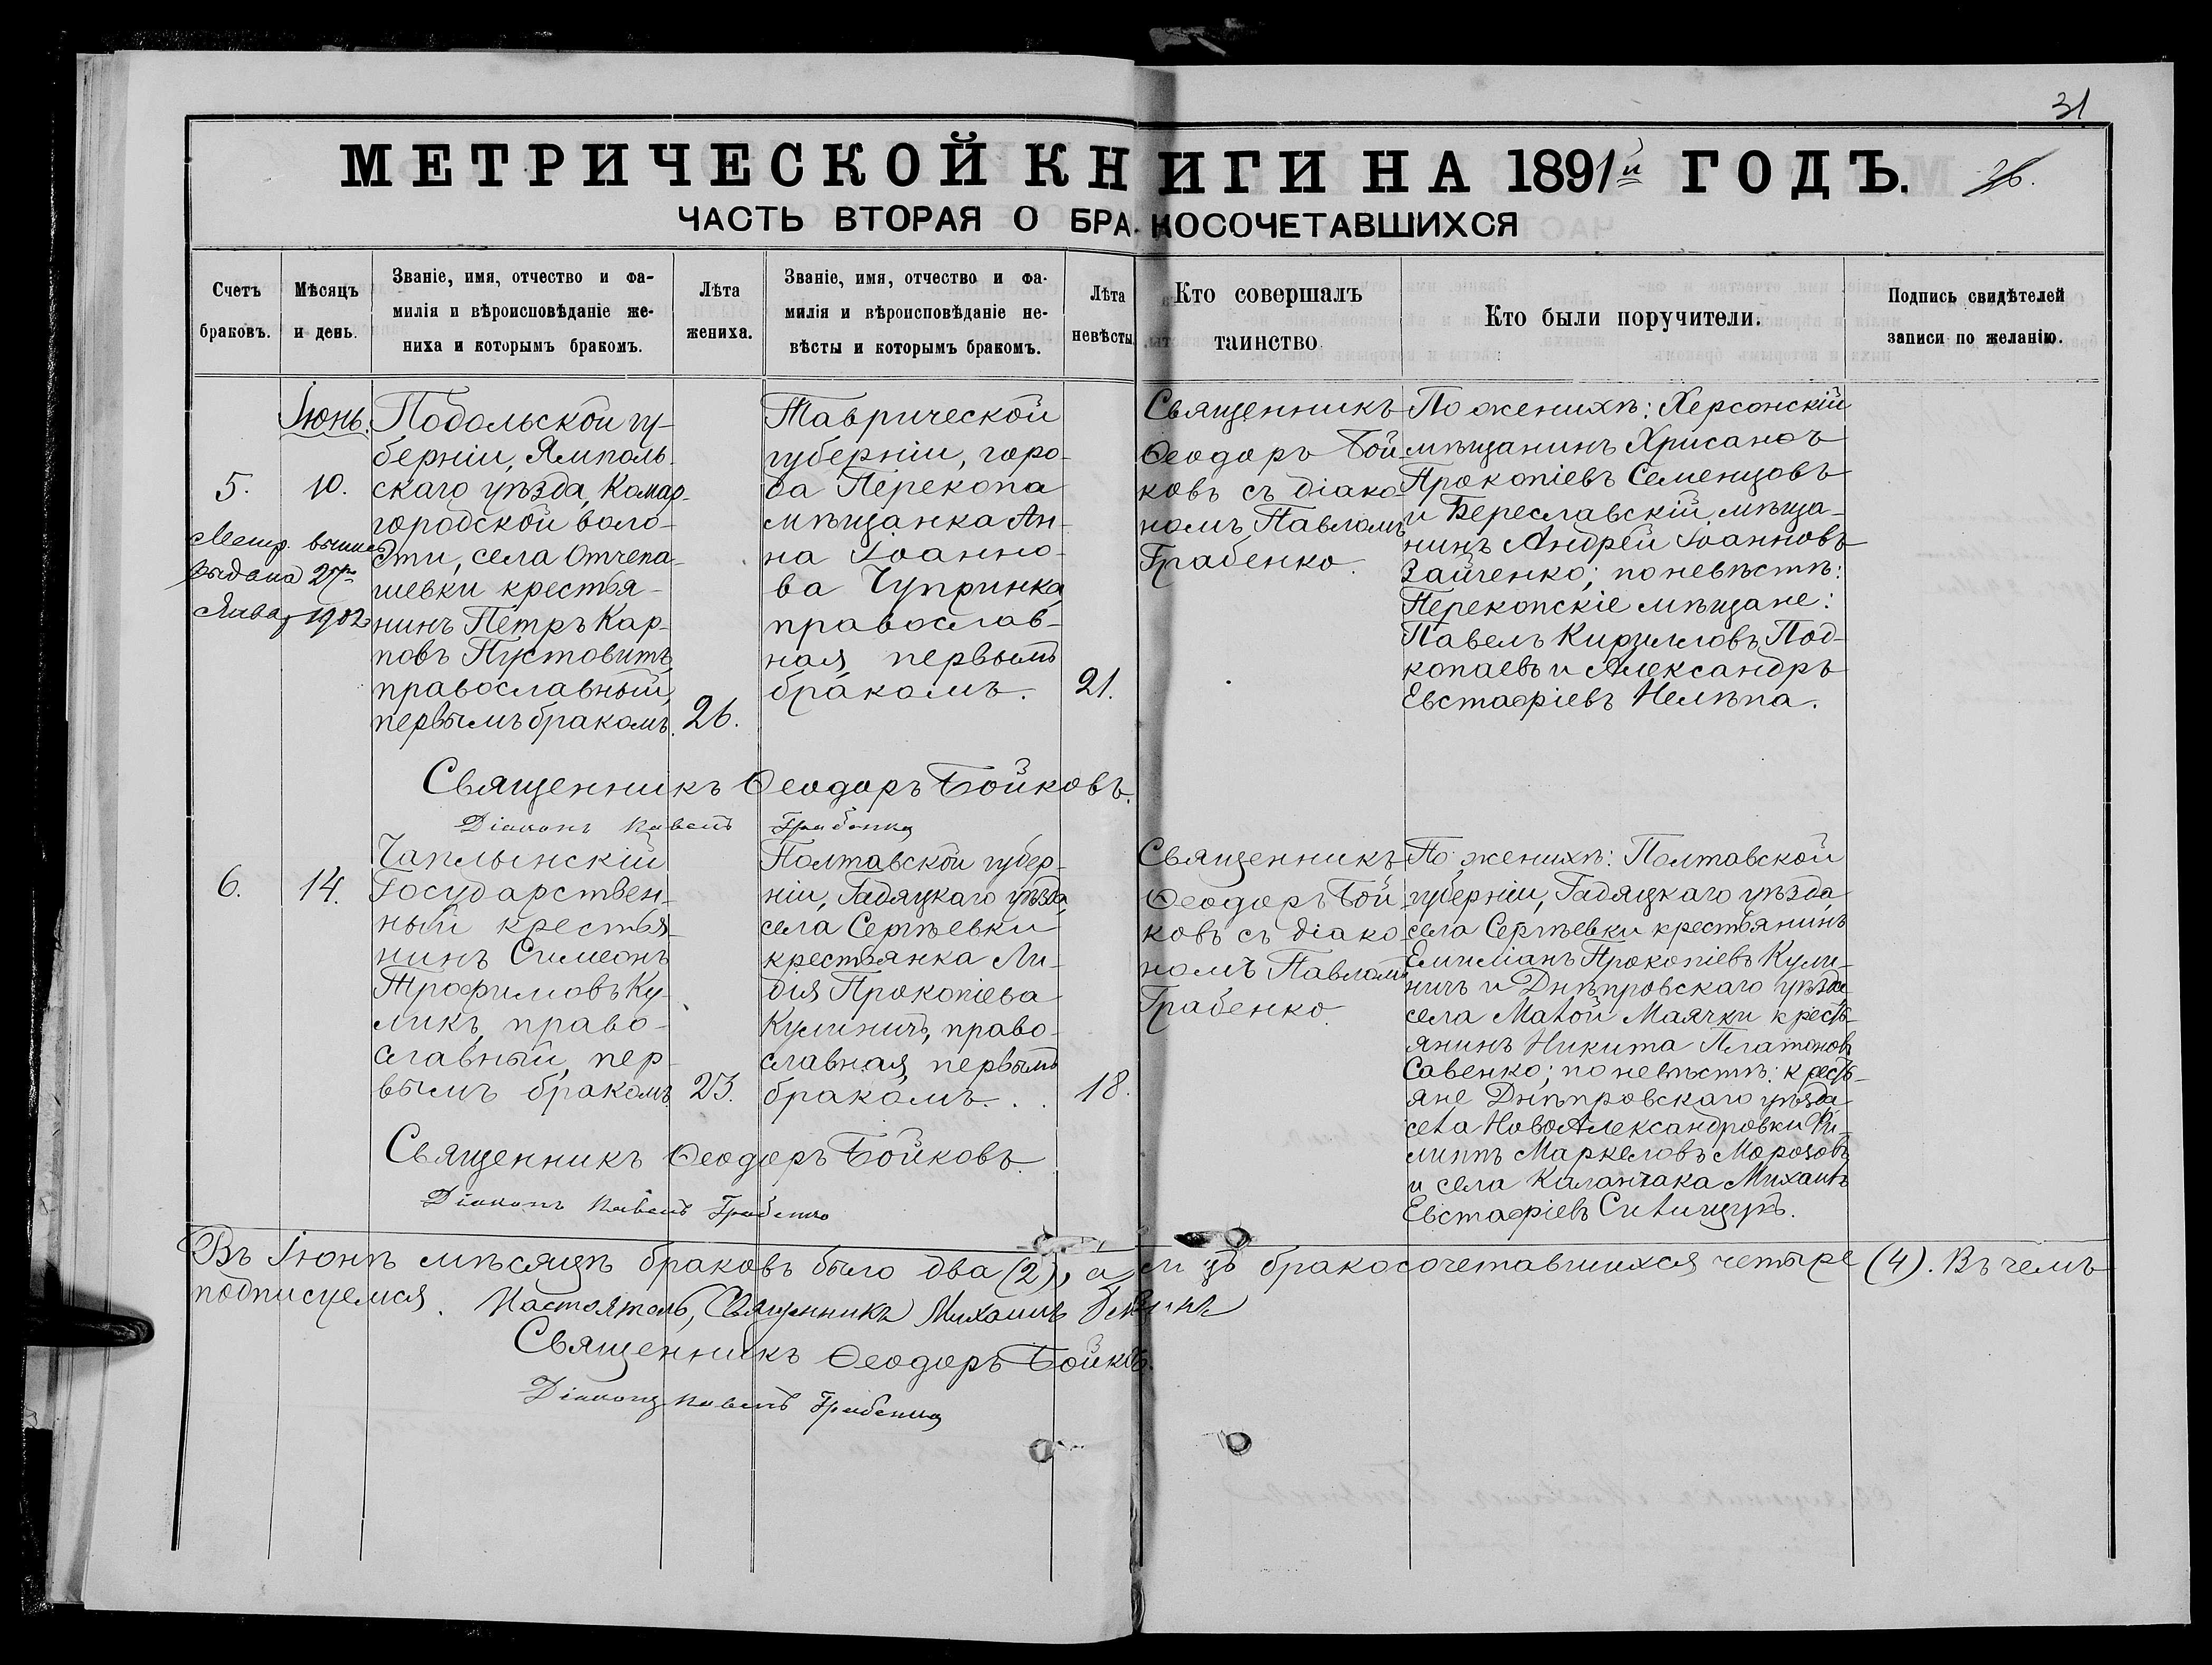 31
МЕТРИЧЕСКОЙ КНИГИ НА 1891й ГОДЪ.
26.
ЧАСТЬ ВТОРАЯ О БРАКОСОЧЕТАВШИХСЯ
Счетъ
браковъ.
Мѣсяцъ
и день.
Званіе, имя, отчество и фа-
милія и вѣроисповѣданіе же-
ниха и которымъ бракомъ.
Лѣта
жениха.
Званіе, имя, отчество и фа-
милія и вѣроисповѣданіе не-
вѣсты и которымъ бракомъ.
Лѣта
невѣсты
Кто совершалъ
таинство
Кто были поручители.
Подпись свидѣтелей
записи по желанію.
5.
Метр. выпись
выдана 27го
1902
Іюнь.
10.
Подольской гу-
берніи, Ямполь-
скаго уѣзда, Комар-
городской воло-
сти, села Отчепа-
шевки крестья-
нинъ Петръ Кар-
повъ Пустовитъ,
православный,
первымъ бракомъ.
26.
Таврической
губерніи, горо-
да Перекопа
мѣщанка Ан-
на Іоанно-
ва Чупринка,
православ-
ная, первымъ
бракомъ.
21.
Священникъ
Ѳеодоръ Бой-
ковъ съ діако-
номъ Павломъ
Грабенко.
По женихѣ: Херсонскій
мѣщанинъ Хрисанѳъ
Прокопіевъ Семенцовъ
и Береславскій мѣща-
нинъ Андрей Іоанновъ
Зайченко; по невѣстѣ:
Перекопскіе мѣщане:
Павелъ Кирилловъ Под-
копаевъ и Александръ
Евстафіевъ Нелѣпа.
Священникъ Ѳеодоръ Бойковъ.
Діаконъ Павелъ Грабенко
6.
14.
Чаплынскій
Государствен-
ный крестья-
нинъ Симеонъ
Трофимовъ Ку-
ликъ, право-
славный, пер-
вымъ бракомъ.
23.
Полтавской губер-
ніи, Гадяцкаго уѣзда,
села Сергѣевки
крестьянка Ли-
дія Прокопіева
Кулиничъ, право-
славная, первымъ
бракомъ. . .
18.
Священникъ
Ѳеодоръ Бой-
ковъ съ діако-
номъ Павломъ
Грабенко.
По женихѣ: Полтавской
губерніи, Гадяцкаго уѣзда
села Сергѣевки крестьянинъ
Емиліанъ Прокопіевъ Кули-
ничъ и Днѣпровскаго уѣзда
села Малой Маячки кресть-
янинъ Никита Платоновъ
Савенко; по невѣстѣ: кресть-
яне Днѣпровскаго уѣзда
села НовоАлександровки Фи-
липпъ Маркеловъ Морозовъ
и села Каланчака Михаилъ
Евстафіевъ Силищукъ.
Священникъ Ѳеодоръ Бойковъ.
Діаконъ Павелъ Грабенко
Въ Іюнѣ мѣсяцѣ браковъ было два (2), а лицъ бракосочетавшихся четыре (4). Въ чемъ
подписуемся. Настоятель, Священникъ Михаилъ
Священникъ Ѳеодоръ Бойковъ.
Діаконъ Павелъ Грабенко